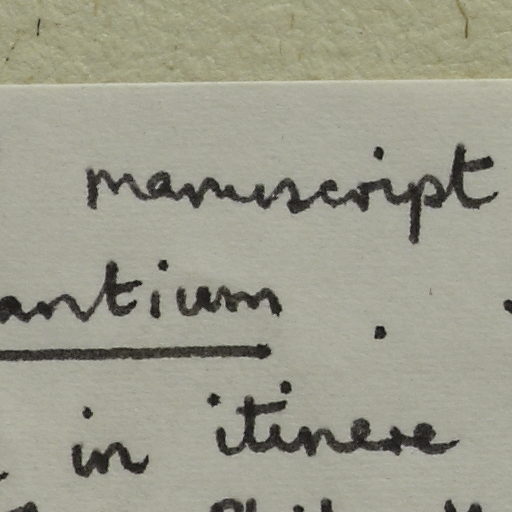 manuscript
antium .
in itinere